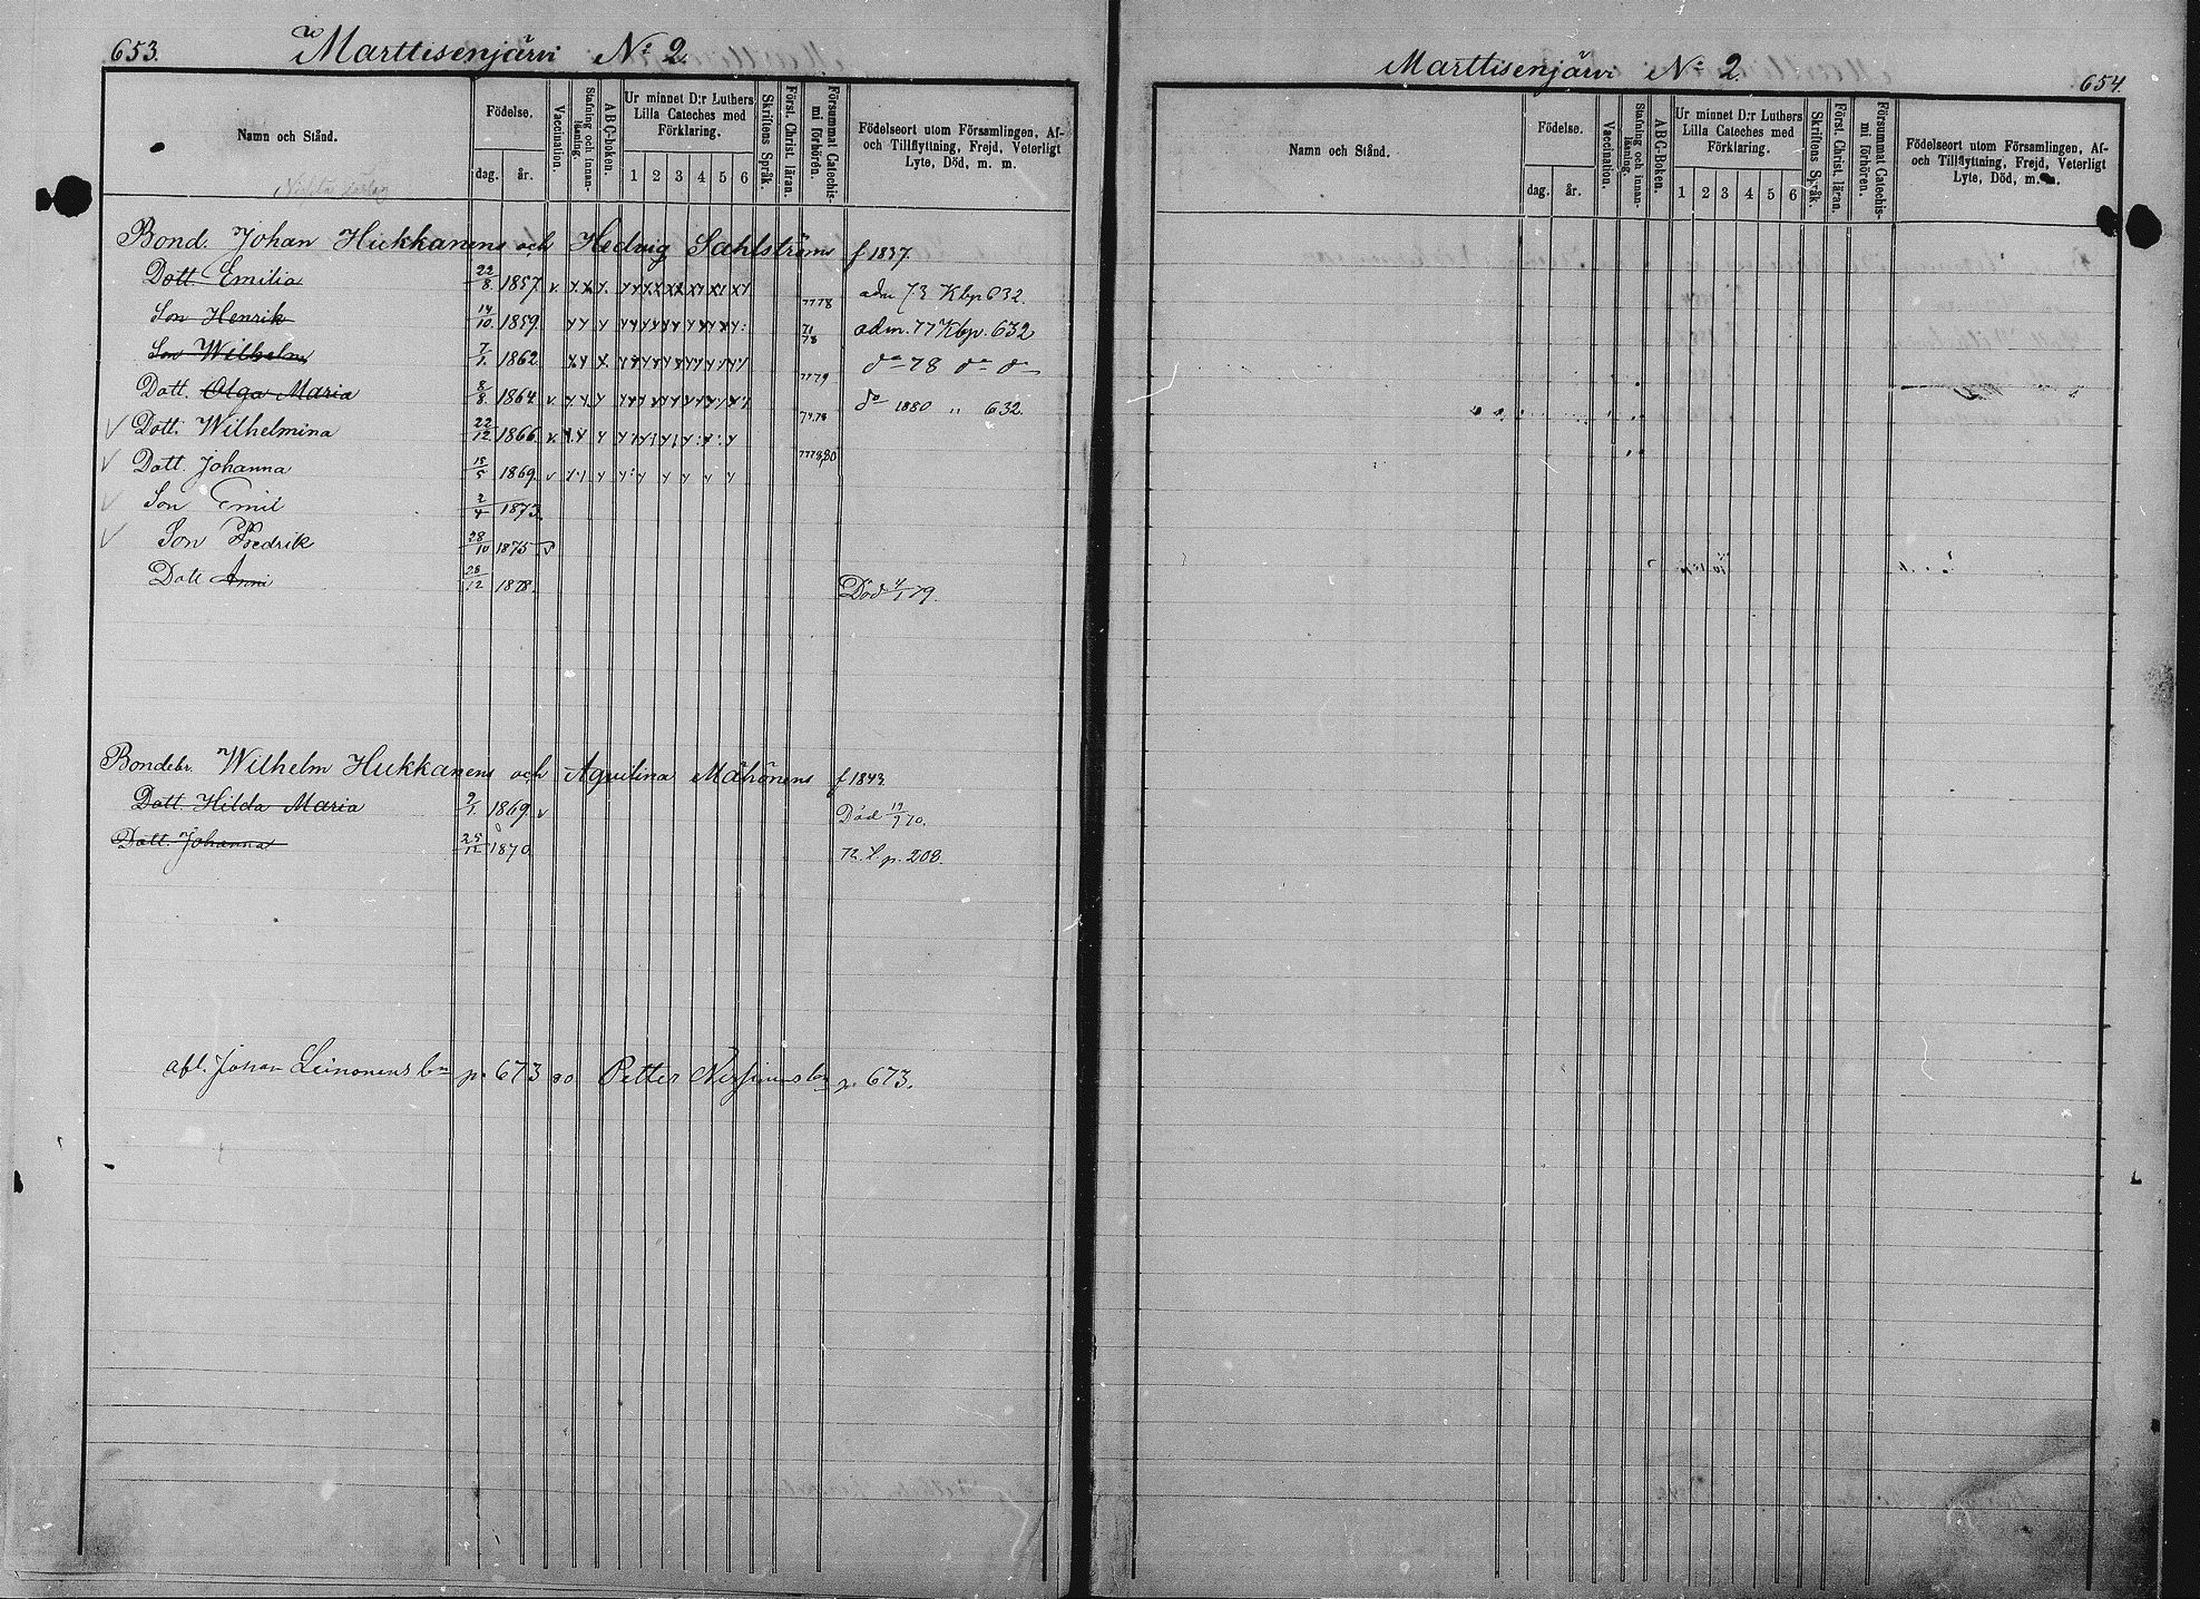 653. Marttisenjärvi No 2.
Namn och Stånd.
Födelse.
dag. år.
Vaccination.
Stafning och innan-läsning.
ABC-boken.
Ur minnet D:r Luthers
Lilla Cateches med
Förklaring.
1 2 3 4 5 6
Skriftens Språk.
Först. Christ. läran.
Försummat Catechis-
mi förhören.
Födelseort utom Församlingen, Af-
och Tillflyttning, Frejd, Veterligt
Lyte, Död, m. m.
Bond. Johan Hukkanens och Hedvig Sahlströms f 1837.
Dott. Emilia 22/8 1857 v. 7778 adm 73 Kbp 632.
Son Henrik 14/10 1859. 71 78 adm. 77 Kbp. 632
Son Wilhelm 7/1. 1862 7779 do 78 do do
Dott. Olga Maria 8/8. 1864 v. 77.78 do 1880 " 632.
Dott. Wilhelmina 22/12 1866 v. 7778,80
Dott. Johanna 15/5 1869. v
Son Emil 2/4 1873.
Son Fredrik 28/10 1875 v
Dott Anni 28/12 1878. Död 4/1 79.
Bondebr. Wilhelm Hukkanens och Aqvilina Mähönens f 1843.
Dott. Hilda Maria 9/1. 1869. v Död 19/9 70.
Dott. Johanna 25/12 1870. p. 208.
afl. Johan Leinonens bn p. 673 Petter bn p. 673.
Marttisenjärvi No 2. 654.
Namn och Stånd.
Födelse.
dag. år.
Vaccination.
Stafning och innan-läsning.
ABC-Boken.
Ur minnet D:r Luthers
Lilla Cateches med
Förklaring.
1 2 3 4 5 6
Skriftens Språk.
Först. Christ. läran.
Försummat Catechis-
mi förhören.
Födelseort utom Församlingen, Af-
och Tillflyttning, Frejd, Veterligt
Lyte, Död, m. m.